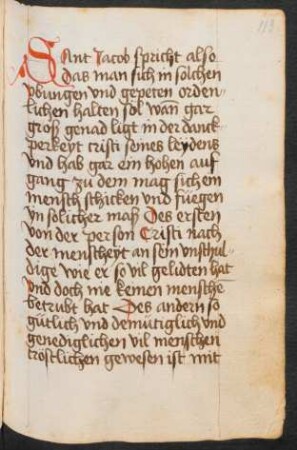 113
Sant Jacob spricht also
das man sich in solchen
vbungen vnd gepeten orden
lichen halten sol wan̄ gar
groß genad ligt in der danck
perkeyt cristi seines leydens
vnd hab gar ein hohen auf
gang zu dem mag sich ein
mensch schicken vnd fuegen
yn solicher maß Des ersten
von der person Cristi nach
der menscheyt an sein vnschul
dige wie er so vil gelidten hat
vnd doch nie keinen mensche
betrubt hat Des andern so
gütlich vnd demütiglich vnd
genediglichen vil menschen
tröstlichen gewesen ist mit